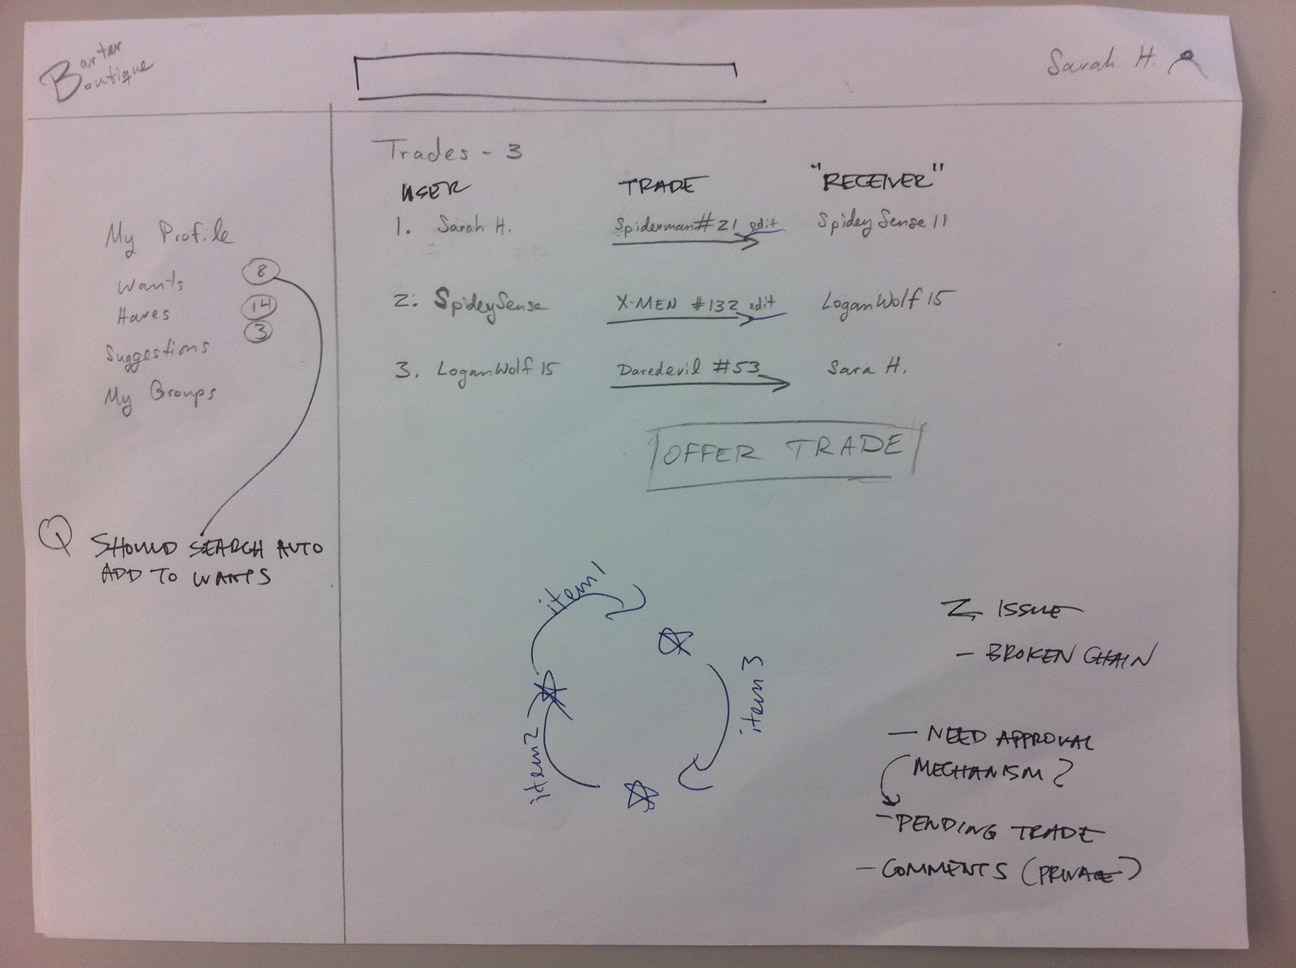 Barter
Boutique
Sarah H.
My Profile
Wants 8
Haves 14
3
Suggestions
My Groups
Q SHOULD SEARCH AUTO
ADD TO WANTS
Trades - 3
USER TRADE "RECEIVER"
1. Sarah H. Spiderman #21 edit SpideySense 11
2. SpideySense X-MEN #132 edit LoganWolf 15
3. LoganWolf 15 Daredevil #53 Sara H.
OFFER TRADE
item 1
item 2
item 3
ISSUE
- BROKEN CHAIN
- NEED APPROVAL
MECHANISM?
- PENDING TRADE
- COMMENTS (PRIVATE)